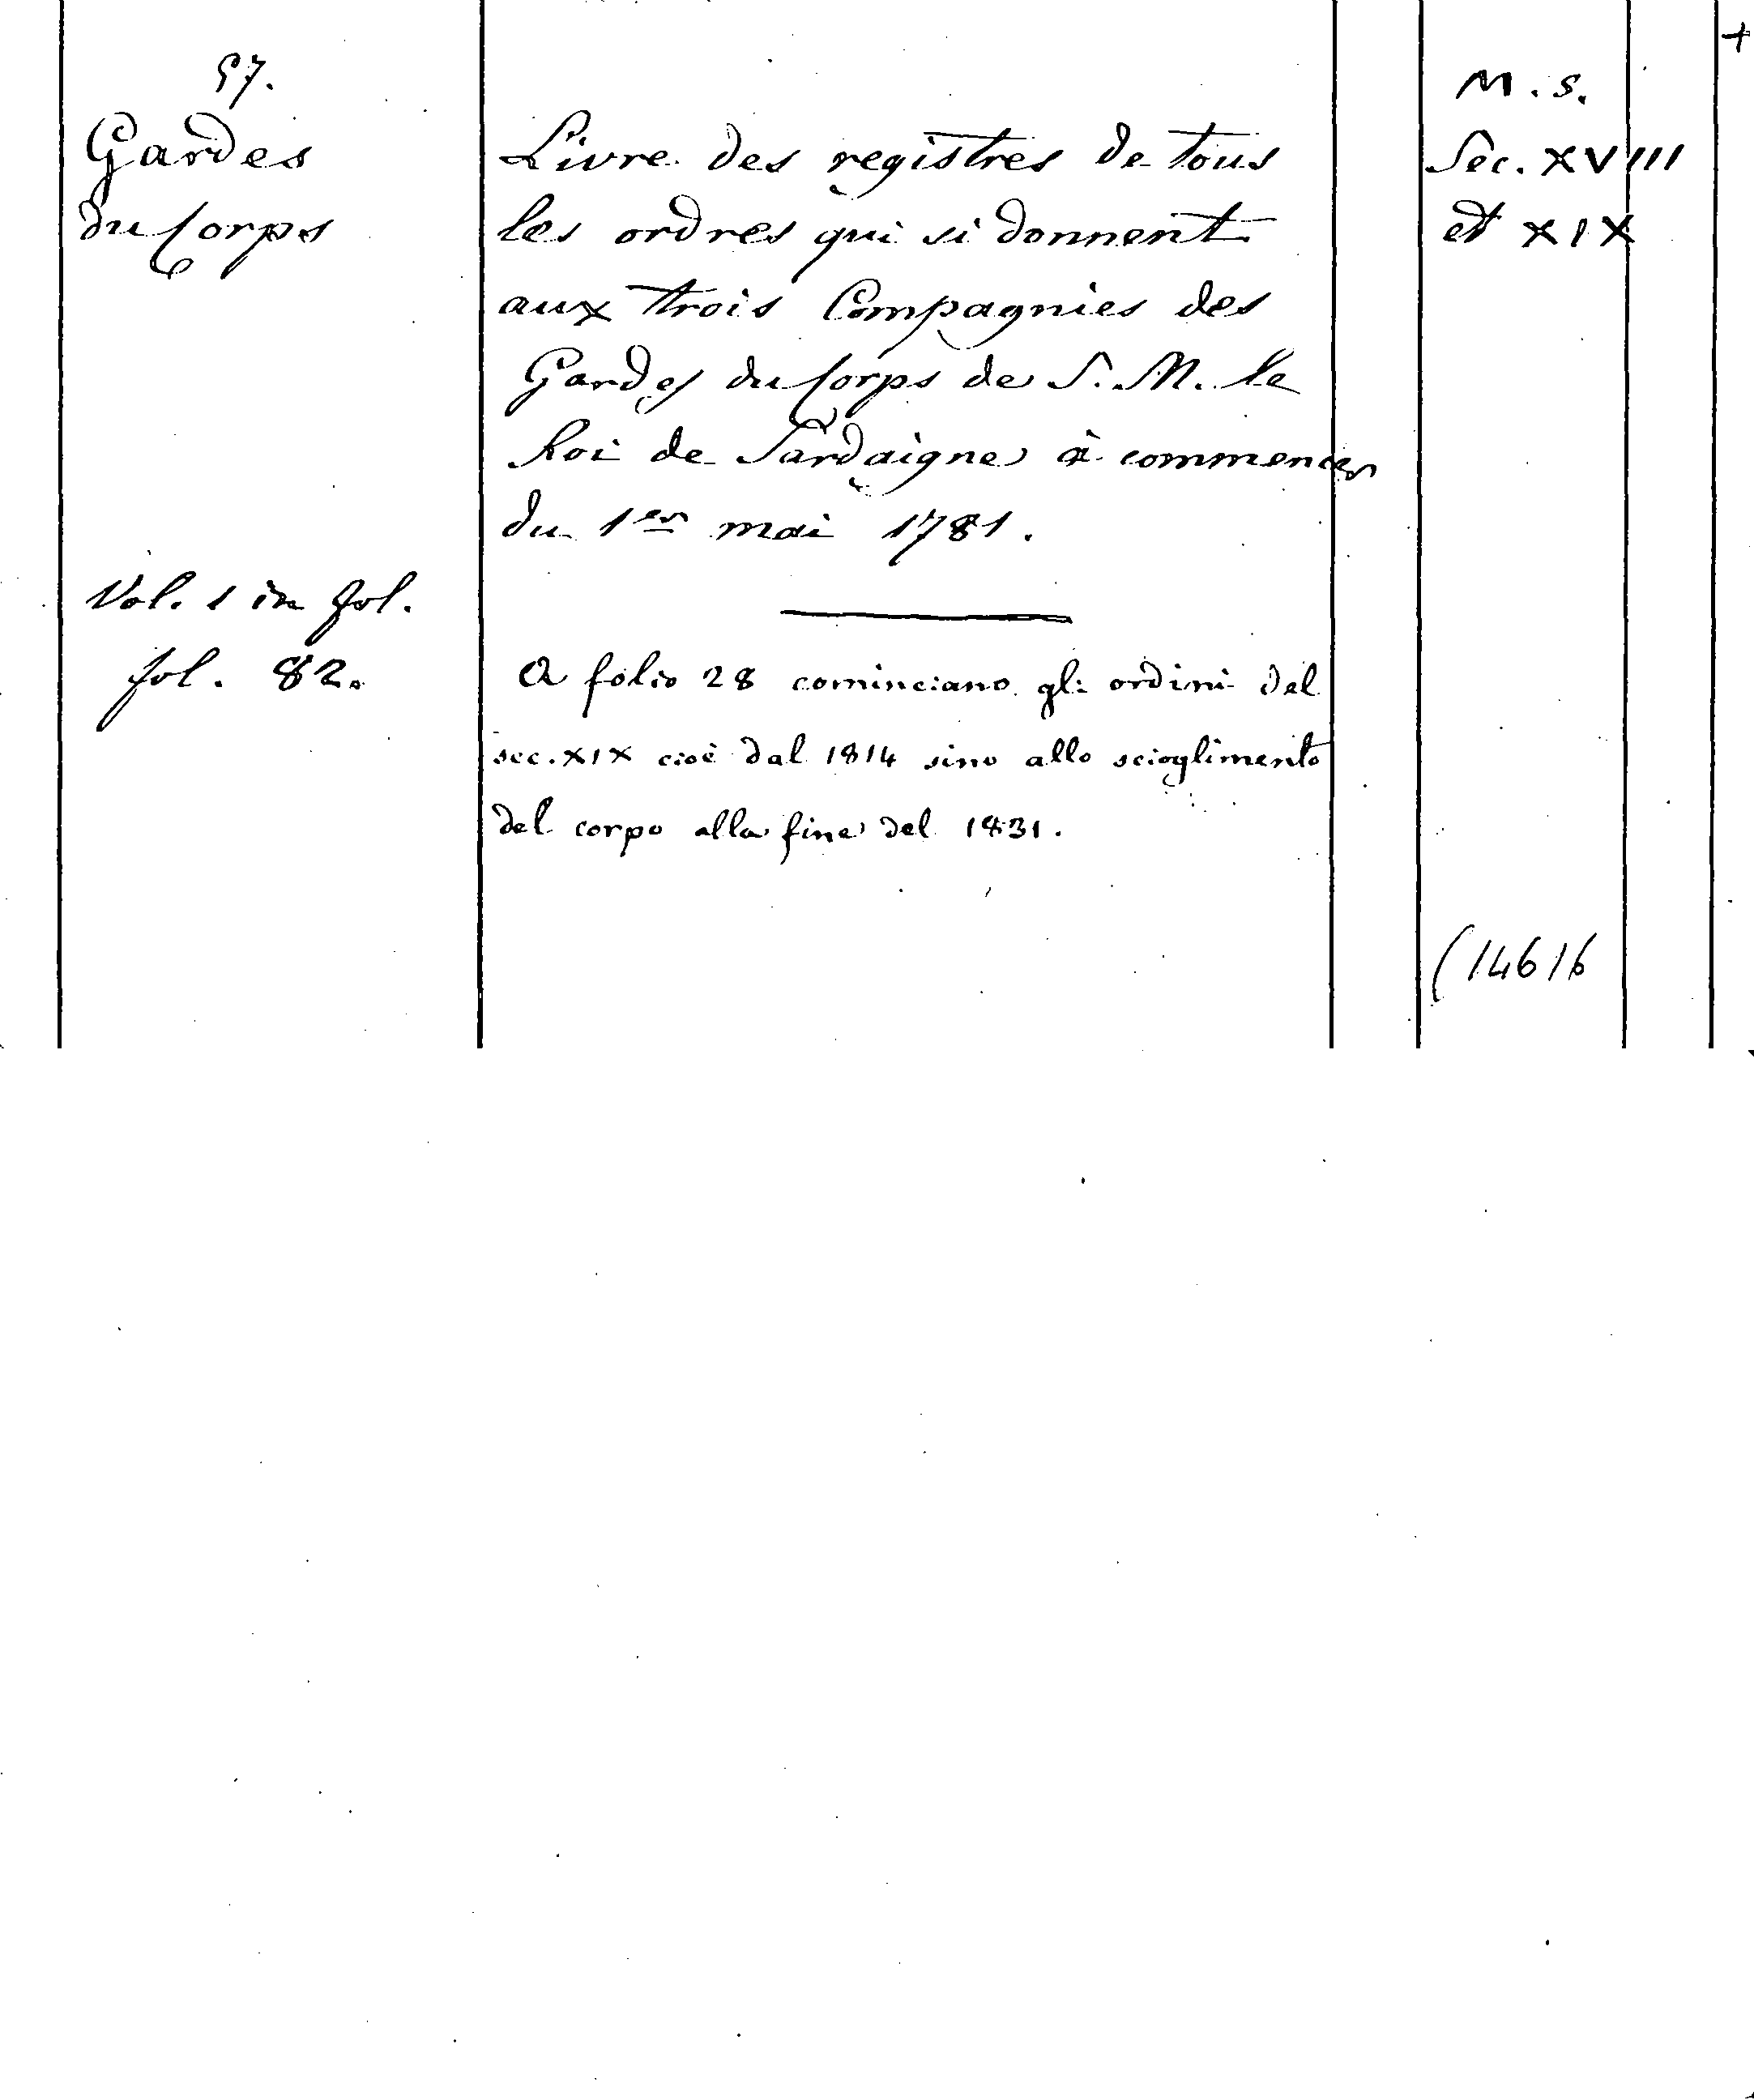 +
57.
Gardes
du Corps
Vol. 1 in fol.
fol. 82.
Livre des registres de tous
les ordres qui si donnent
aux trois Compagnies des
Gardes du Corps de S. M. le
Roi de Sardaigne à commencer
du 1er mai 1781.
A folio 28 cominciano gli ordini del
sec. XIX cioè dal 1814 sino allo scioglimento
del corpo alla fine del 1831.
M. S.
Sec. XVIII
et XIX
(14616